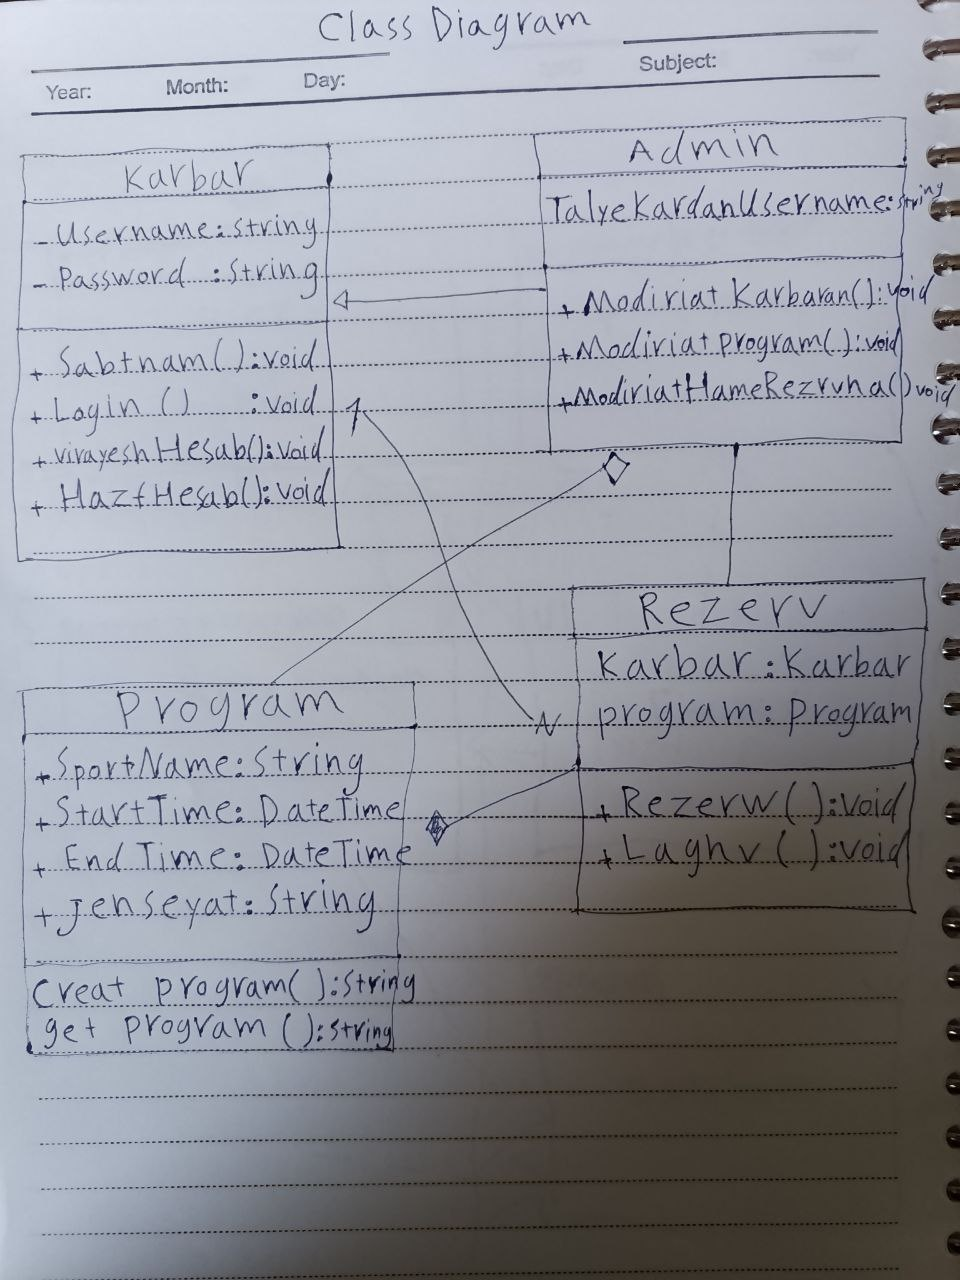 Class Diagram
Year: Month: Day: Subject:
Karbar
- Username: String
- Password : String
+ Sabtnam(): void
+ Login () : void
+ virayesh Hesab(): void
+ HazfHesab(): void
Admin
TalyeKardanUsername: string
+ Modiriat Karbaran(): void
+ Modiriat program(): void
+ ModiriatHameRezrvha() void
1
N
Rezerv
Karbar : Karbar
program: Program
+ Rezerw (): void
+ Laghv ( ): void
Program
+ SportName: String
+ StartTime: DateTime
+ End Time: DateTime
+ Jenseyat: String
Creat program( ): String
get program (): String